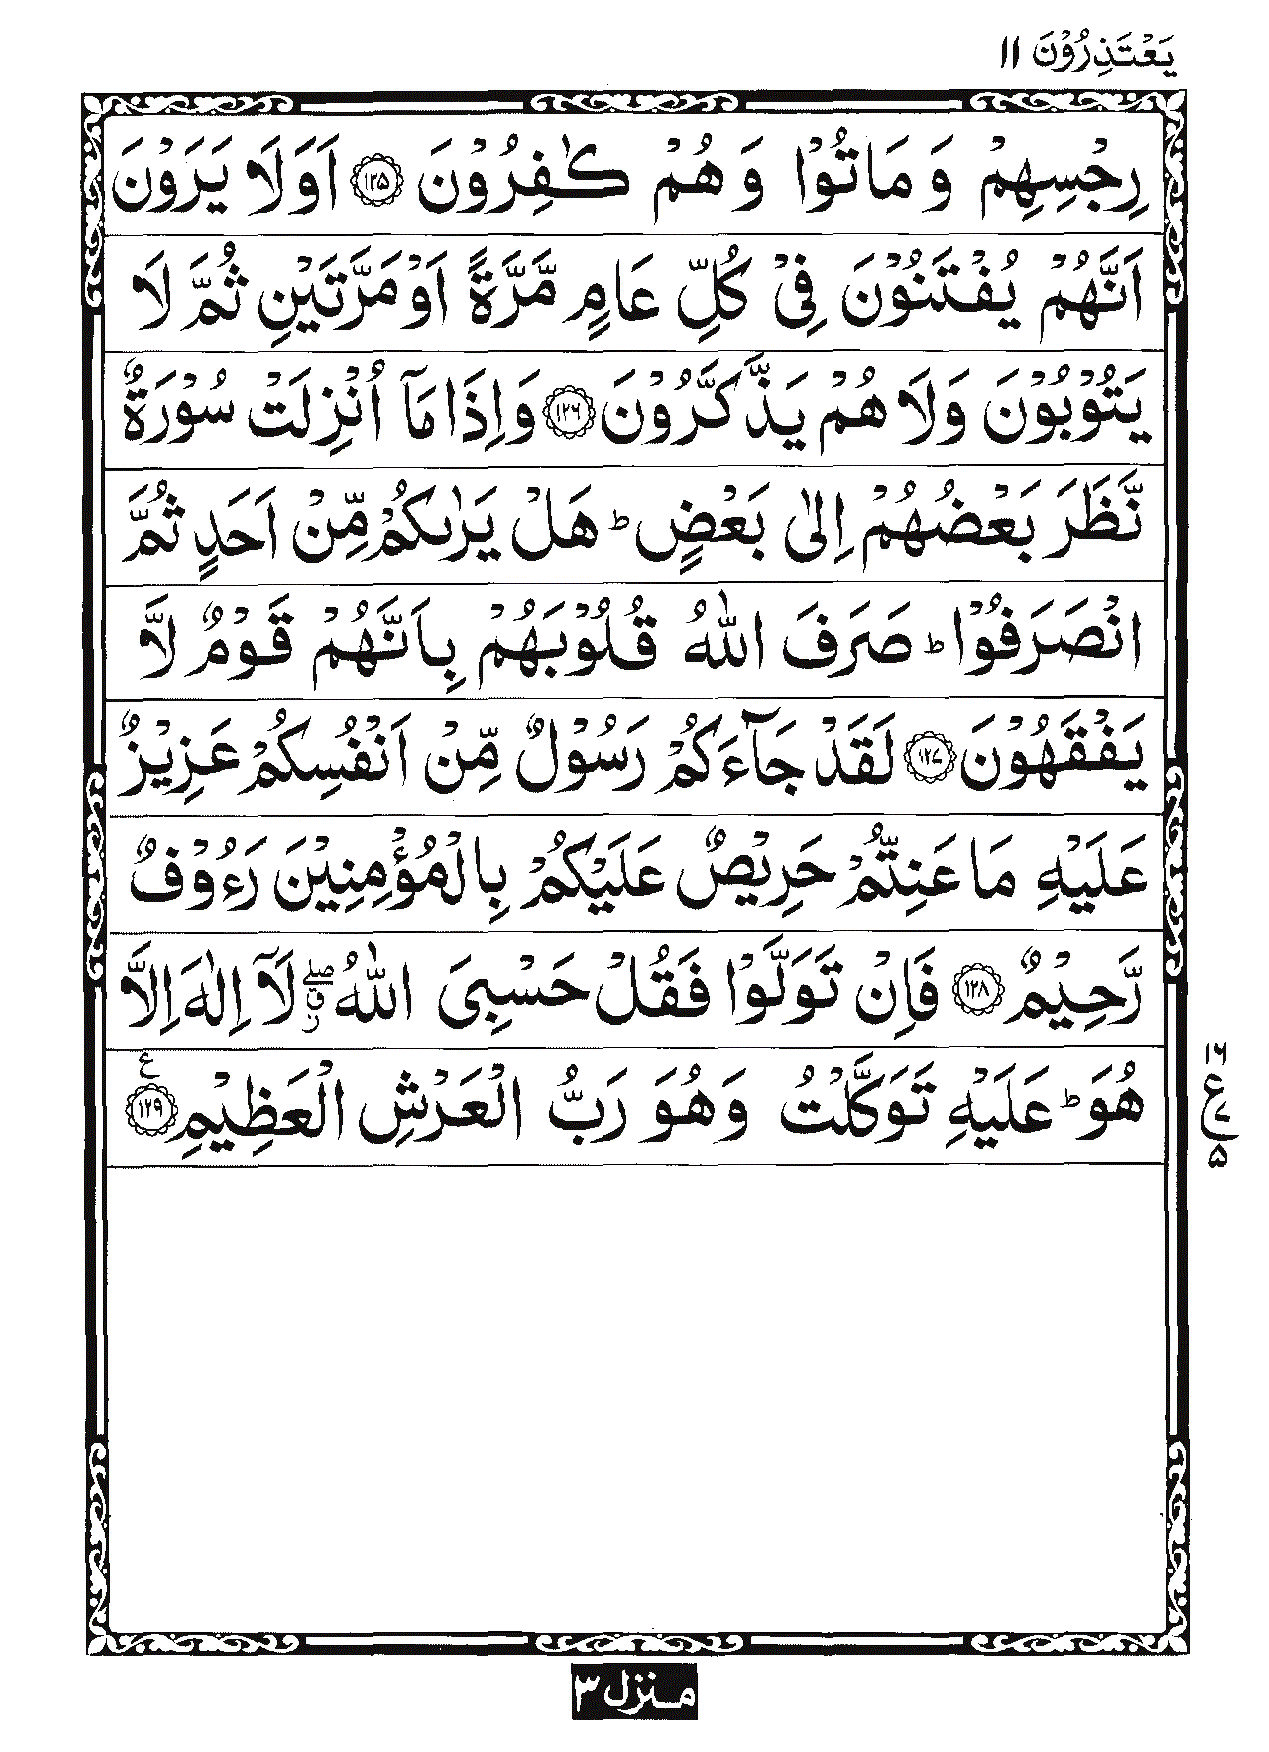 يَعْتَذِرُوْنَ ۱۱
رِجْسِهِمْ وَمَاتُوْا وَهُمْ كٰفِرُوْنَ ۝۱۲۵ اَوَلَا يَرَوْنَ
اَنَّهُمْ يُفْتَنُوْنَ فِيْ كُلِّ عَامٍ مَّرَّةً اَوْ مَرَّتَيْنِ ثُمَّ لَا
يَتُوْبُوْنَ وَلَا هُمْ يَذَّكَّرُوْنَ ۝۱۲۶ وَاِذَا مَآ اُنْزِلَتْ سُوْرَةٌ
نَّظَرَ بَعْضُهُمْ اِلٰى بَعْضٍ ؕ هَلْ يَرٰىكُمْ مِّنْ اَحَدٍ ثُمَّ
انْصَرَفُوْا ؕ صَرَفَ اللّٰهُ قُلُوْبَهُمْ بِاَنَّهُمْ قَوْمٌ لَّا
يَفْقَهُوْنَ ۝۱۲۷ لَقَدْ جَآءَكُمْ رَسُوْلٌ مِّنْ اَنْفُسِكُمْ عَزِيْزٌ
عَلَيْهِ مَا عَنِتُّمْ حَرِيْصٌ عَلَيْكُمْ بِالْمُؤْمِنِيْنَ رَءُوْفٌ
رَّحِيْمٌ ۝۱۲۸ فَاِنْ تَوَلَّوْا فَقُلْ حَسْبِيَ اللّٰهُ ۖ ق ز لَآ اِلٰهَ اِلَّا
هُوَ ؕ عَلَيْهِ تَوَكَّلْتُ وَهُوَ رَبُّ الْعَرْشِ الْعَظِيْمِ ۝۱۲۹ ع
۱۶
ع
۷
۵
منزل ۳